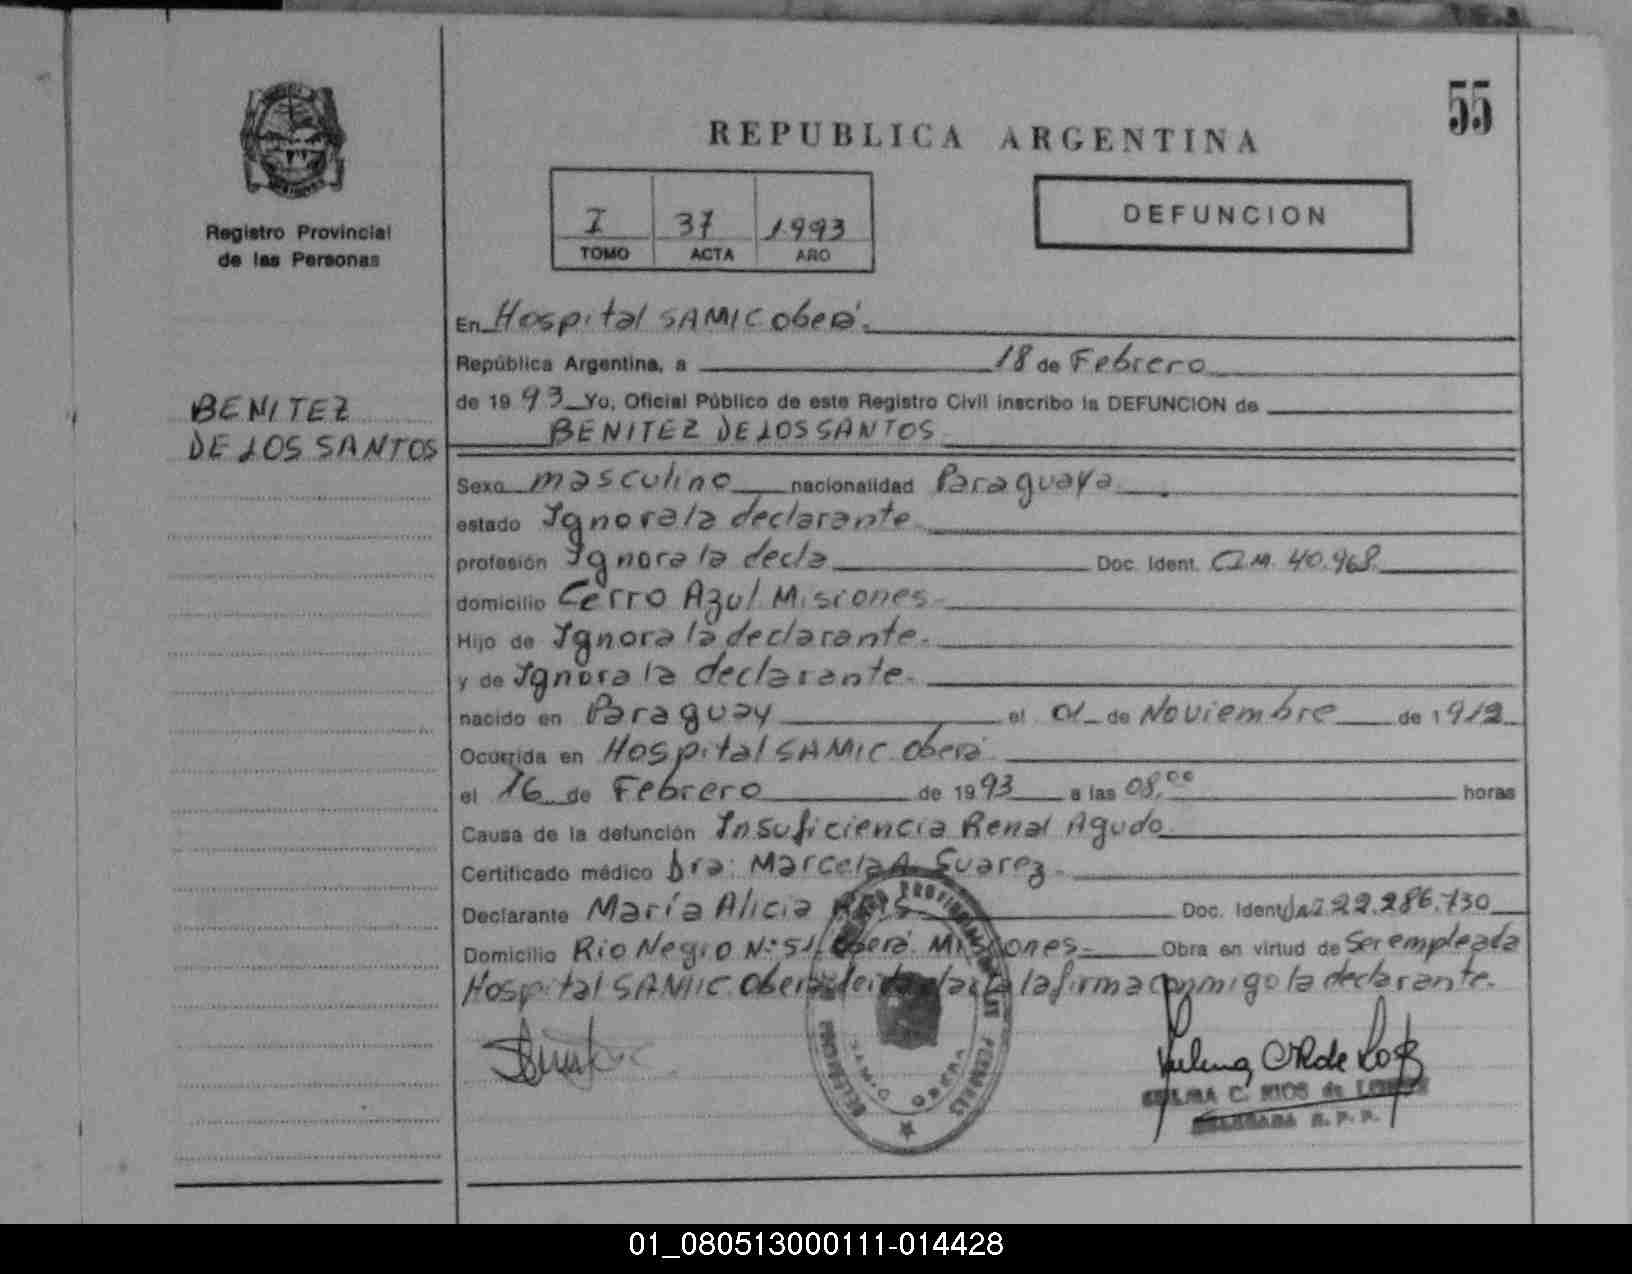 55
REPUBLICA ARGENTINA
Registro Provincial
de las Personas
I 37 1993
TOMO ACTA AÑO
DEFUNCION
En Hospital SAMIC Oberá.
República Argentina, a 18 de Febrero
de 1993 Yo, Oficial Público de este Registro Civil inscribo la DEFUNCION de
BENITEZ
DE LOS SANTOS
BENITEZ DE LOS SANTOS
Sexo masculino nacionalidad Paraguaya
estado Ignora la declarante
profesión Ignora la decla Doc. Ident. C.I.M. 40.968.
domicilio Cerro Azul Misiones
Hijo de Ignora la declarante.
y de Ignora la declarante.
nacido en Paraguay el 01 de Noviembre de 1912
Ocurrida en Hospital SAMIC Oberá
el 16 de Febrero de 1993 a las 08,00 horas
Causa de la defunción Insuficiencia Renal Agudo
Certificado médico Dra: Marcela A Suarez
Declarante María Alicia Doc. Ident. 22.286.730
Domicilio Río Negro N:51. Oberá. Misiones Obra en virtud de Ser empleada
Hospital SAMIC. Oberá la firma conmigo la declarante.
SAMIC OBERA
C. RIOS de
R. P. P.
01_080513000111-014428